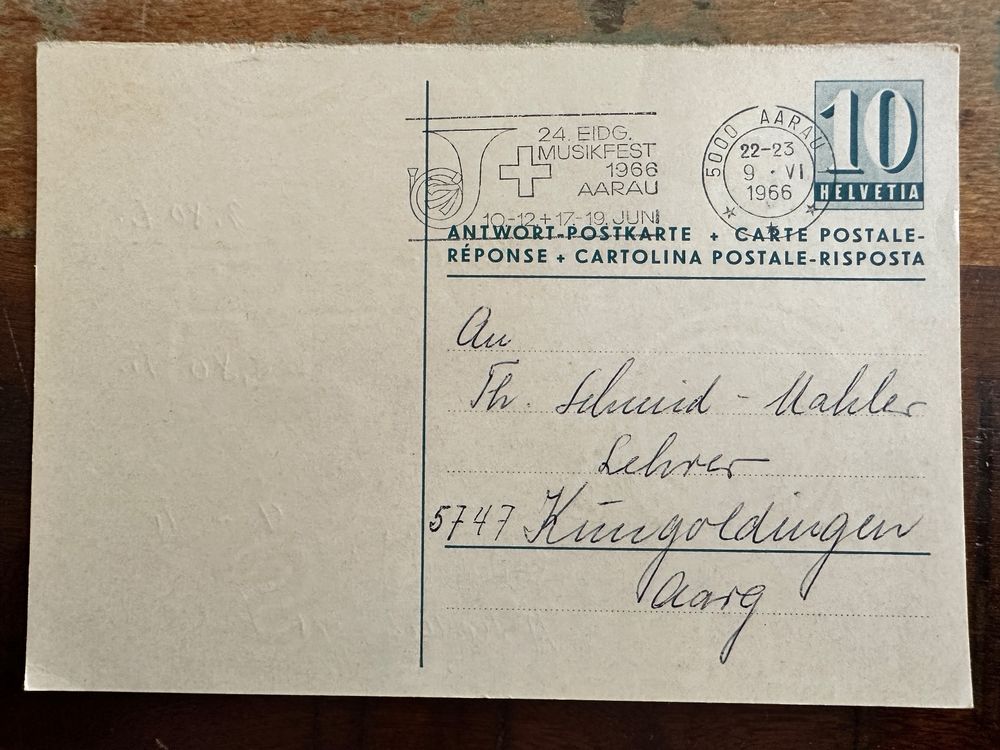 24. EIDG.
MUSIKFEST
1966
AARAU
10-12+17-19. JUNI
5000 AARAU
22-23
9 · VI
1966
10
HELVETIA
ANTWORT-POSTKARTE + CARTE POSTALE-
RÉPONSE + CARTOLINA POSTALE-RISPOSTA
An
Th. Schmid - Mahler
Lehrer
5747 Küngoldingen
Aarg